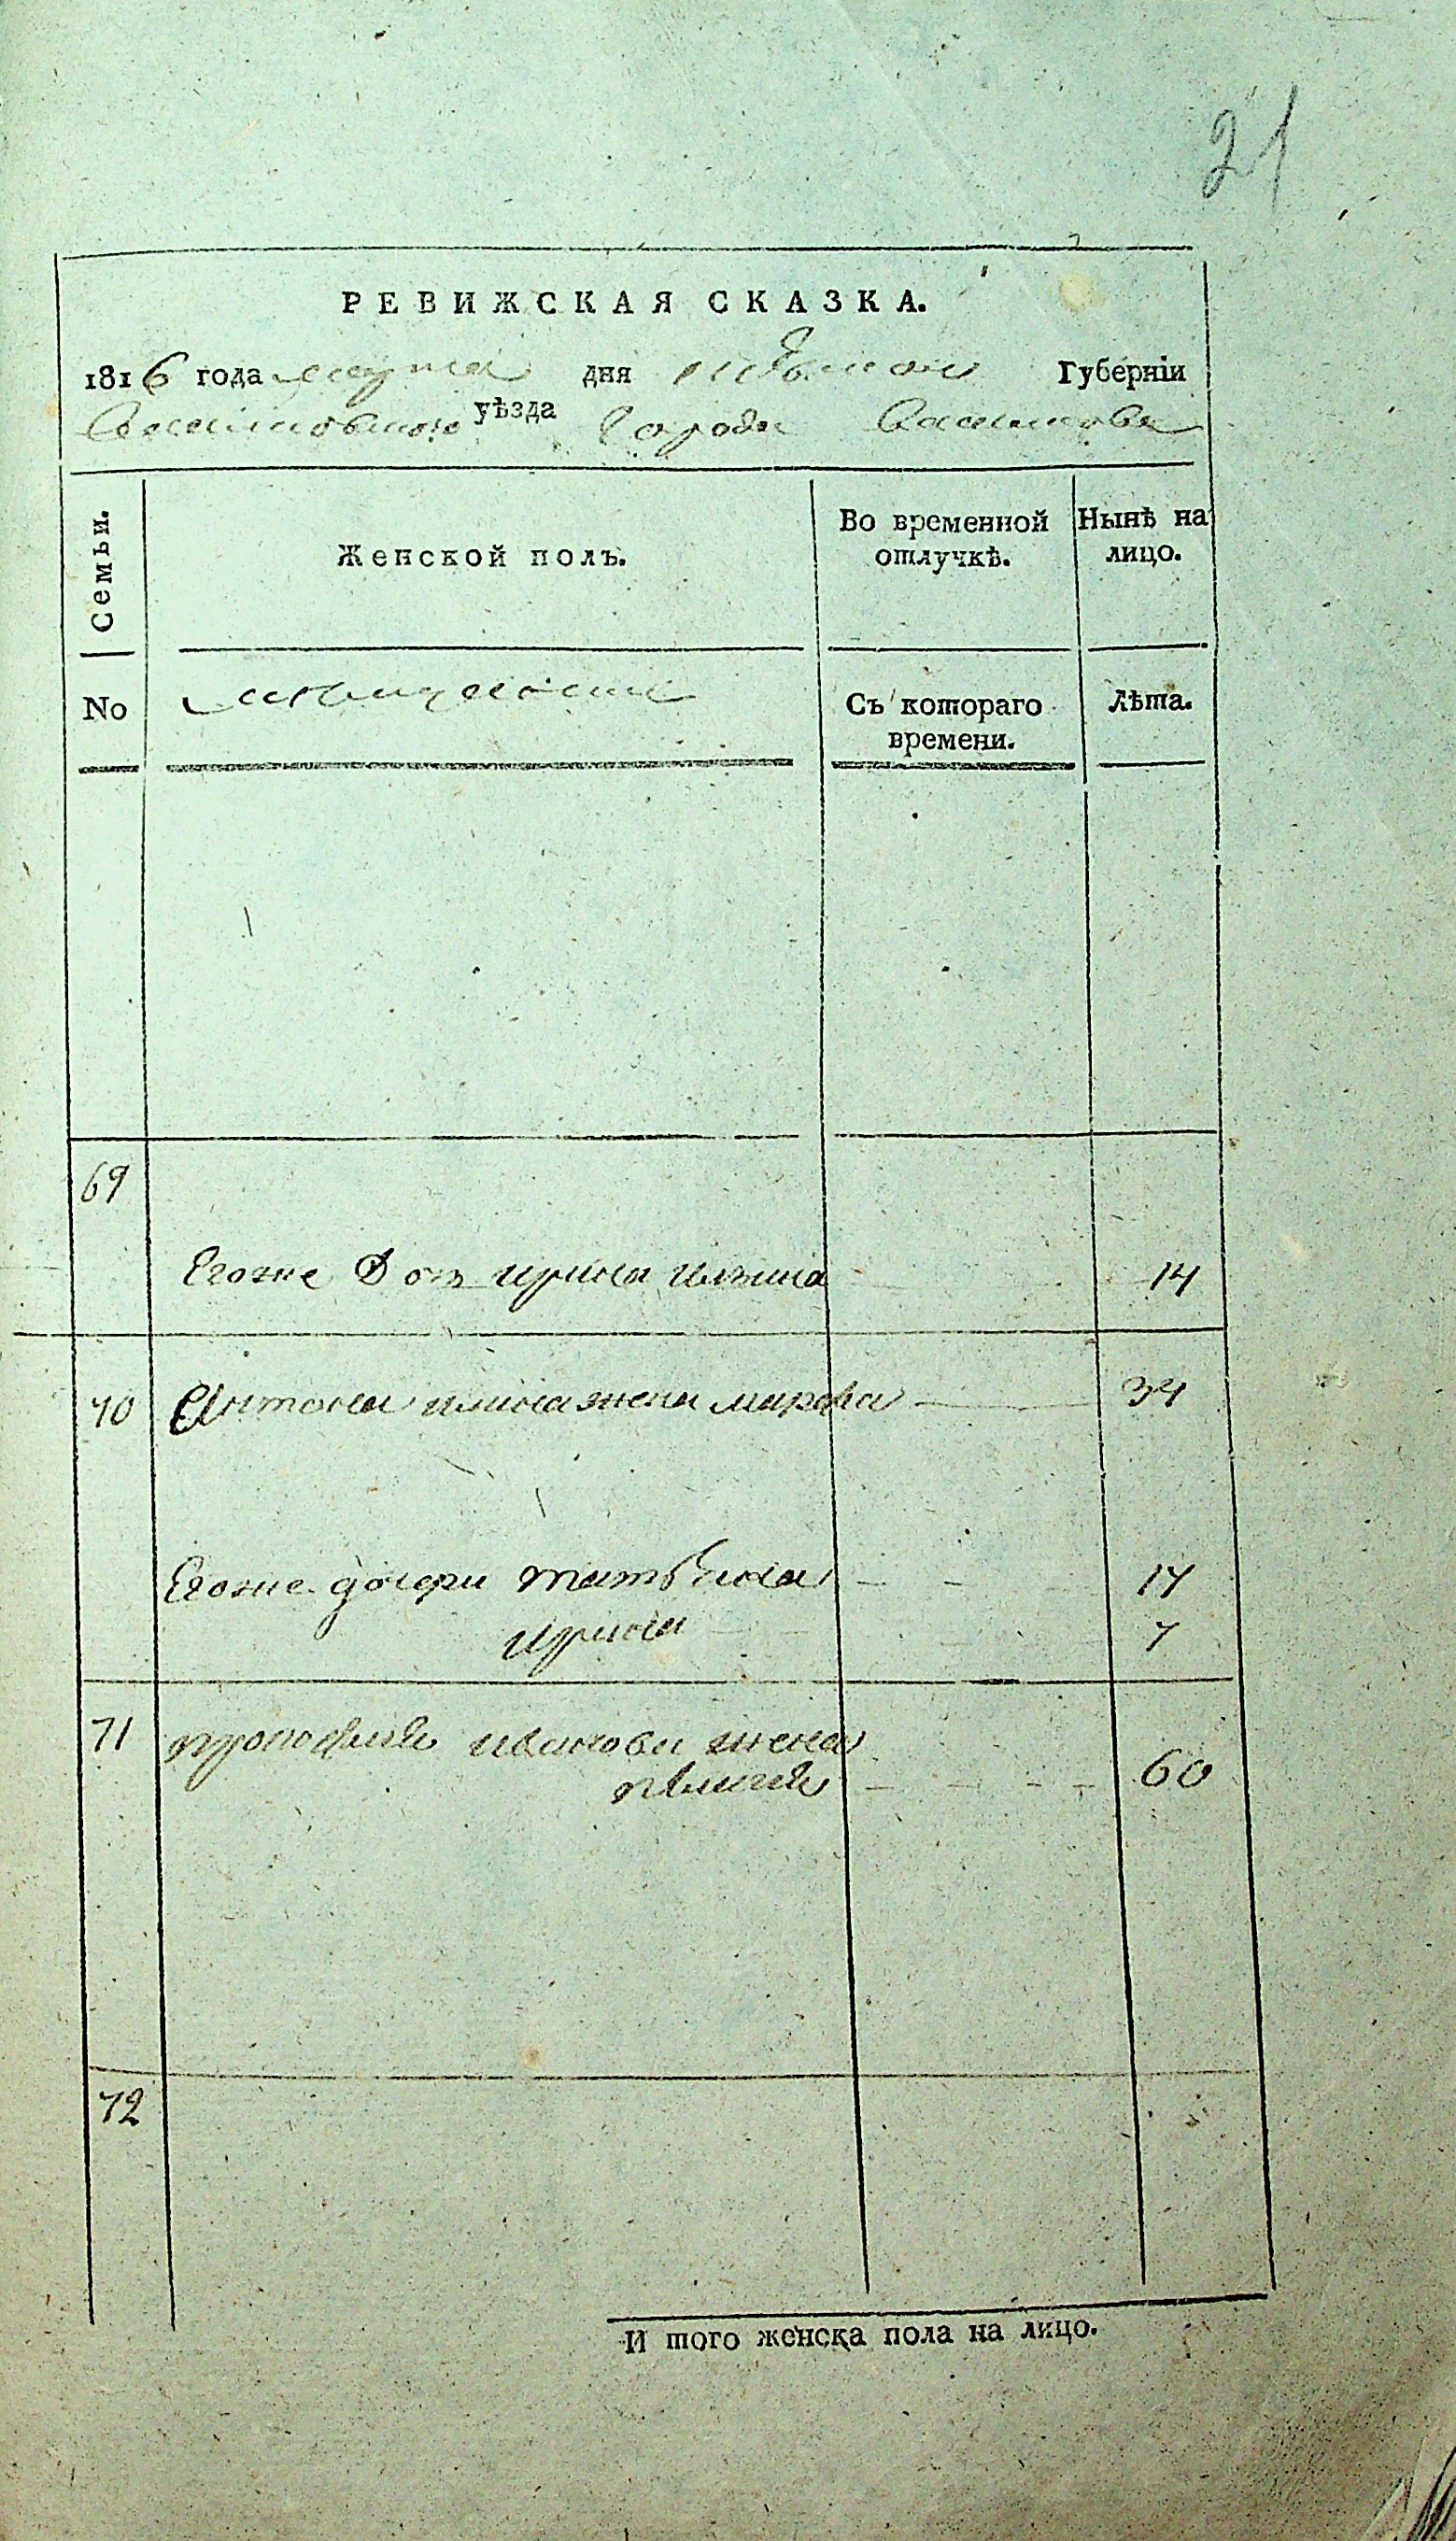 21
РЕВИЖСКАЯ СКАЗКА.
1816 года марта дня Губерніи
уѣзда Города
Семьи.
Женской полъ.
Во временной отлучкѣ.
Нынѣ на лицо.
No
Съ котораго времени.
Лѣта.
69
Егоже Доч ирина 14
70 Антона жена марфа 34
Егоже дочери татьяна 14
ирина 7
71 иванова жена
60
72
И того женска пола на лицо.